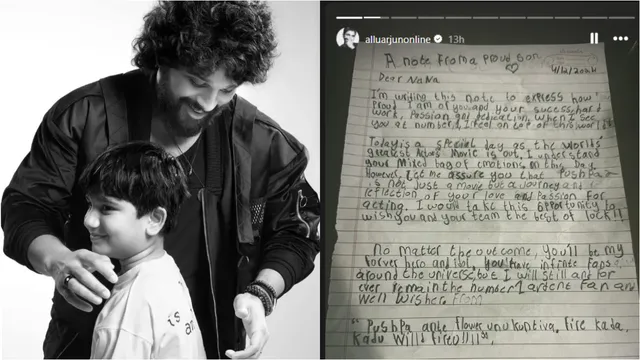 alluarjunonline 13h
A note from a proud son
Dear Nana
I'm writing this note to express how
Proud I am of you and your sucess, hard
work, Passion and dedication, when I see
you at number 1, I feel on top of this world
Today is a special day as the worlds
greatest Actors Movie is out, I understand
your Mixed bag of emotions on this Day
However, let me assure you that Pushpa2
is not just a movie but a journey and
reflection of your love and Passion for
acting. I would take this opportunity to
wish you and your team the best of luck!!
No matter the outcome, you'll be my
forver hero and idol, you have infnite Fans
around the universe, but I will still and for
ever remain the number 1 ardent Fan and
Well wisher From
"Pushpa ante flower anukuntiva, fire kada,
kadu Willd fireuiii"
is
an